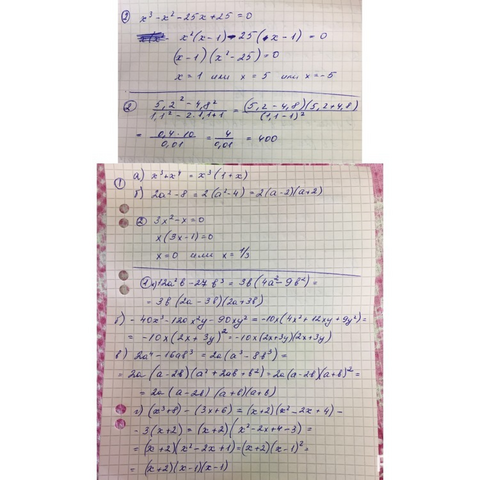 3) x³ - x² - 25x + 25 = 0
x²(x - 1) - 25(x - 1) = 0
(x - 1)(x² - 25) = 0
x = 1 или x = 5 или x = -5
2) (5,2² - 4,8²)/(1,1² - 2·1,1+1) = (5,2 - 4,8)(5,2+4,8)/(1,1-1)²
= 0,4·10/0,01 = 4/0,01 = 400
1) а) x³+x⁴ = x³(1+x)
б) 2a² - 8 = 2(a² - 4) = 2(a - 2)(a+2)
2) 3x² - x = 0
x(3x - 1) = 0
x = 0 или x = 1/3
1) 12a²b - 27b³ = 3b(4a² - 9b²) =
= 3b(2a - 3b)(2a+3b)
б) -40x³ - 120x²y - 90xy² = -10x(4x² + 12xy + 9y²) =
= -10x(2x + 3y)² = -10x(2x+3y)(2x+3y)
в) 2a⁴ - 16ab³ = 2a(a³ - 8b³) =
= 2a(a - 2b)(a² + 2ab + b²) = 2a(a - 2b)(a+b)² =
= 2a(a - 2b)(a+b)(a+b)
(x³+8) - (3x+6) = (x+2)(x² - 2x + 4) -
- 3(x+2) = (x+2)(x² - 2x + 4 - 3) =
= (x+2)(x² - 2x + 1) = (x+2)(x - 1)² =
= (x+2)(x - 1)(x - 1)